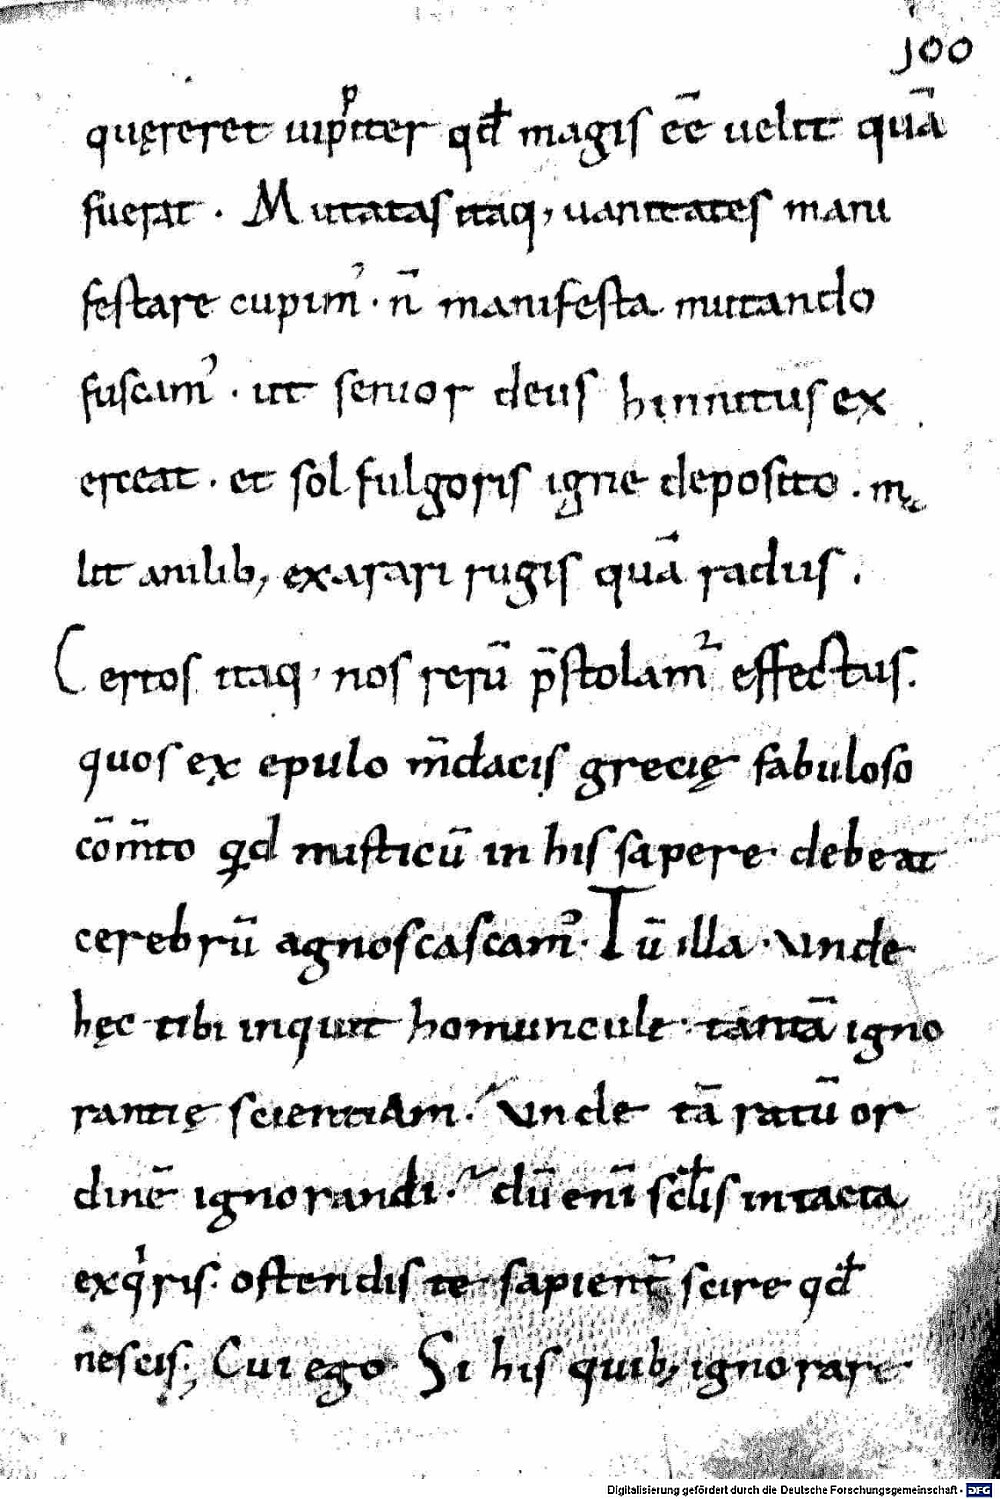 100
quęreret iupꝑiter qd̄ magis eē uelit quā
fuerat . Mutatas itaq; uanitates mani
festare cupim᾽ . n̄ manifesta mutando
fuscam᾽ . ut senior deus hinnitus ex
erceat . et sol fulgoris igne deposito . mę
lit anilib; exarari rugis quā radiis .
Certos itaq; nos rerū p̄stolam᾽ effectus .
quos ex epulo m̄dacis grecię fabuloso
cōm̄to qd misticū in his sapere debeat
cerebrū agnoscascam᾽ . Tū illa . Unde
hęc tibi inquit homuncule . tantā igno
rantię scientiam . Unde tā ratū or
dinē ignorandi . dū eni᷄ sc̄lis intacta
exqͥris . ostendis te sapient̄ scire qd̄
nescis ; Cui ego Si his quib; ignorare
Digitalisierung gefördert durch die Deutsche Forschungsgemeinschaft - DFG